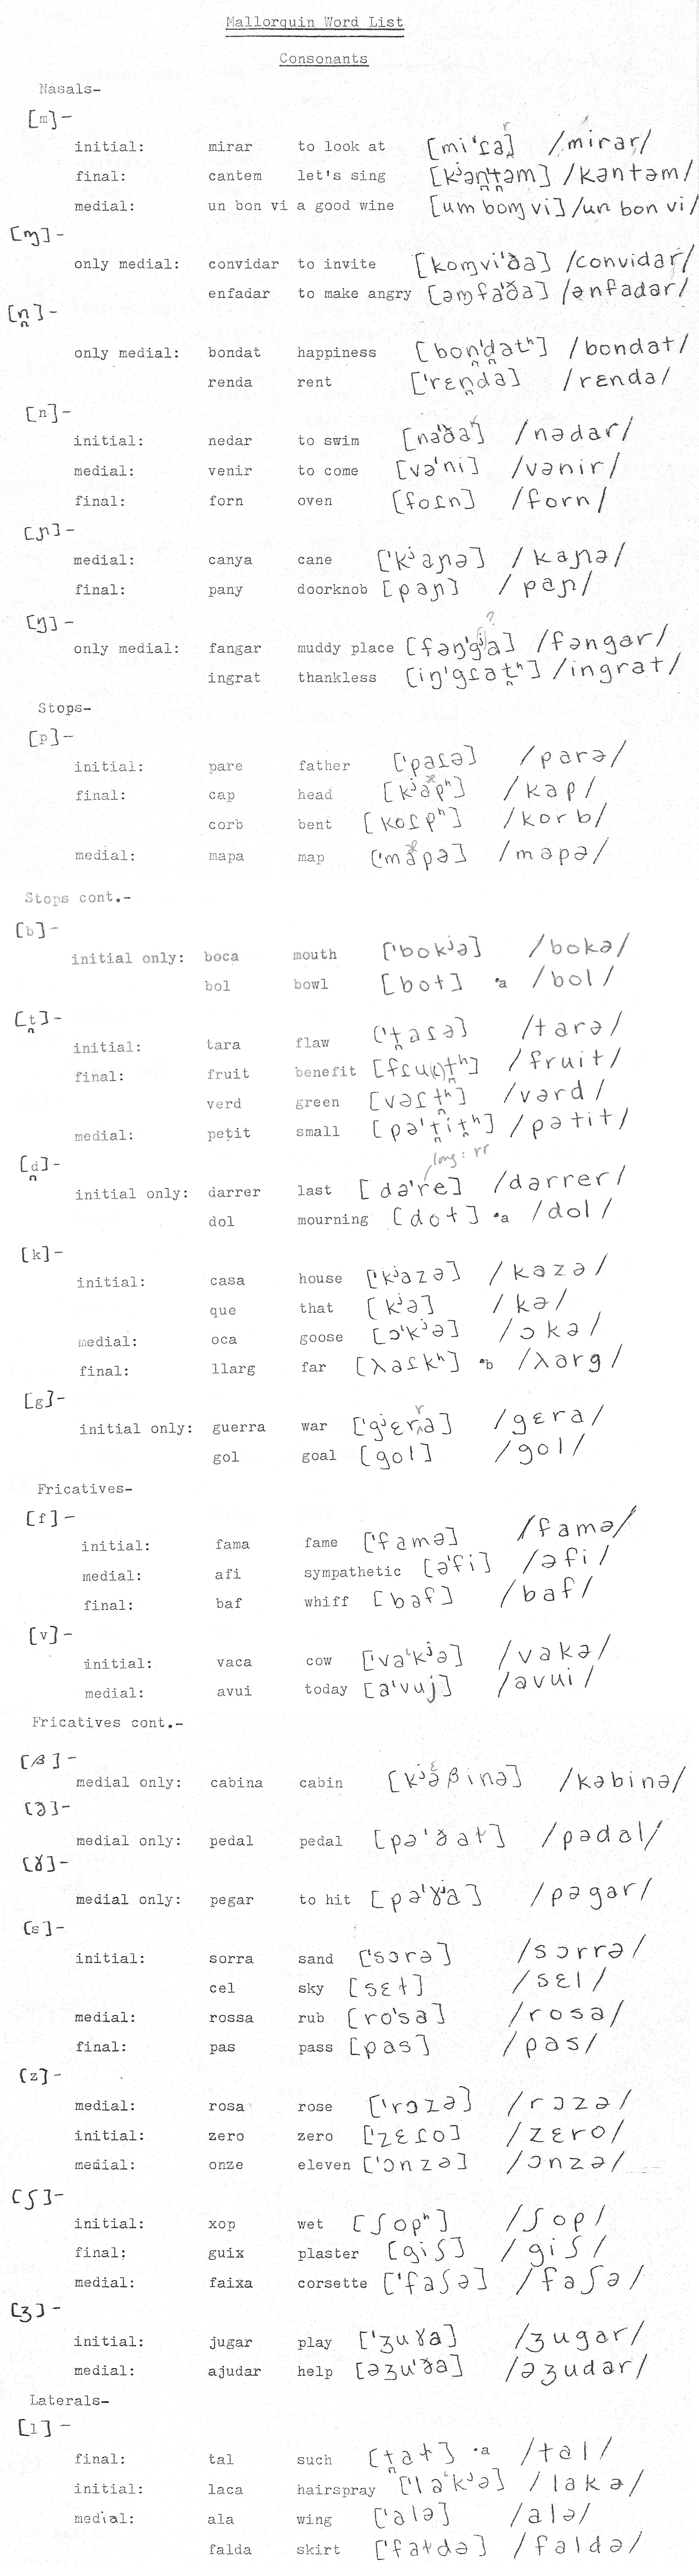 Mallorquin Word List
Consonants
Nasals-
[m]-
initial: mirar to look at [mi'ɾa] r /mirar/
final: cantem let's sing [kʲən̪'t̪əm] /kantəm/
medial: un bon vi a good wine [um boɱ vi] /un bon vi/
[ɱ]-
only medial: convidar to invite [koɱvi'ða] /convidar/
enfadar to make angry [əɱfa'ða] /ənfadar/
[n̪]-
only medial: bondat happiness [bon̪'d̪atʰ] /bondat/
renda rent ['rɛn̪da] /rɛnda/
[n]-
initial: nedar to swim [nə'ða] /nədar/
medial: venir to come [və'ni] /vənir/
final: forn oven [foɾn] /forn/
[ɲ]-
medial: canya cane ['kʲaɲə] /kaɲə/
final: pany doorknob [paɲ] /paɲ/
[ŋ]-
?
only medial: fangar muddy place [fəŋ'gʲa] /fəngar/
ingrat thankless [iŋ'gɾat̪ʰ] /ingrat/
Stops-
[p]-
initial: pare father ['paɾə] /parə/
final: cap head [kʲapʰ] /kap/
corb bent [koɾpʰ] /korb/
medial: mapa map ['mapə] /mapə/
Stops cont.-
[b]-
initial only: boca mouth ['bokʲə] /bokə/
bol bowl [boɫ] •a /bol/
[t̪]-
initial: tara flaw ['t̪aɾə] /tarə/
final: fruit benefit [fɾu(i)t̪ʰ] /fruit/
verd green [vəɾt̪ʰ] /vərd/
medial: petit small [pə't̪it̪ʰ] /pətit/
long: rr
[d̪]-
initial only: darrer last [də're] /darrer/
dol mourning [doɫ] •a /dol/
[k]-
initial: casa house ['kʲazə] /kazə/
que that [kʲə] /kə/
medial: oca goose [ɔ'kʲə] /ɔkə/
final: llarg far [λaɾkʰ] •b /λarg/
[g]-
initial only: guerra war ['gʲɛrə] r /gɛra/
gol goal [gol] /gol/
Fricatives-
[f]-
initial: fama fame ['famə] /famə/
medial: afi sympathetic [ə'fi] /əfi/
final: baf whiff [baf] /baf/
[v]-
initial: vaca cow ['va'kʲə] /vakə/
medial: avui today [a'vuj] /avui/
Fricatives cont.-
[β]-
medial only: cabina cabin [kʲəβinə] /kəbinə/
[ð]-
medial only: pedal pedal [pə'ðaɫ] /pədal/
[ɣ]-
medial only: pegar to hit [pə'ɣʲa] /pəgar/
[s]-
initial: sorra sand ['sɔrə] /sɔrrə/
cel sky [sɛɫ] /sɛl/
medial: rossa rub [ro'sa] /rosa/
final: pas pass [pas] /pas/
[z]-
medial: rosa rose ['rɔzə] /rɔzə/
initial: zero zero ['zɛɾo] /zɛro/
medial: onze eleven ['ɔnzə] /ɔnzə/
[ʃ]-
initial: xop wet [ʃopʰ] /ʃop/
final: guix plaster [giʃ] /giʃ/
medial: faixa corsette ['faʃə] /faʃə/
[ʒ]-
initial: jugar play ['ʒuɣa] /ʒugar/
medial: ajudar help [əʒu'ða] /əʒudar/
Laterals-
[l]-
final: tal such [t̪aɫ] •a /tal/
initial: laca hairspray ['la'kʲə] /lakə/
medial: ala wing ['alə] /alə/
falda skirt ['faɫdə] /faldə/